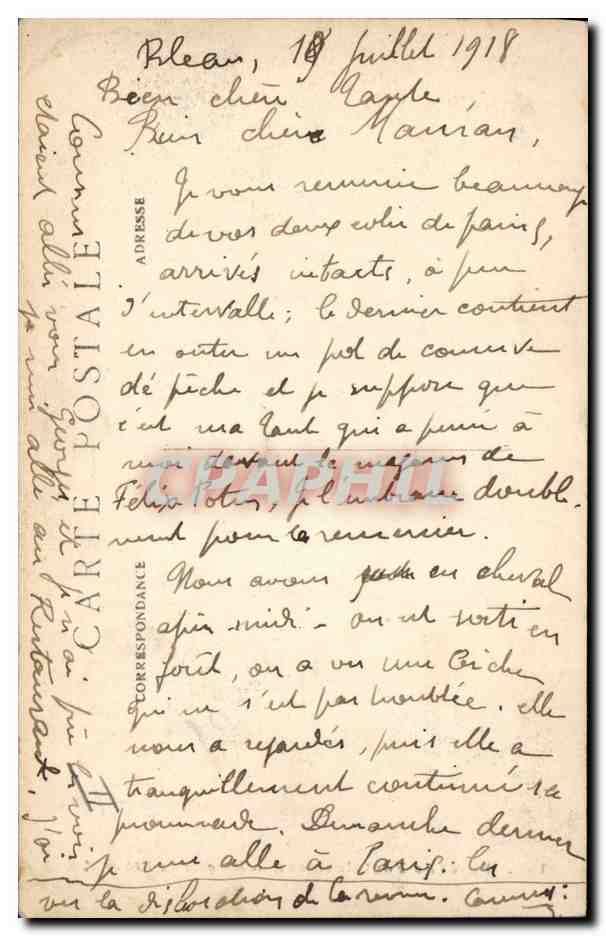 Bleau, 18 juillet 1918
Bien chère Tante,
Bien chère Maman,
Je vous remercie beaucoup
de vos deux colis de pains,
arrivés intacts, à peu
d'intervalle; le dernier contient
en outre un pot de conserve
de pêche et je suppose que
c'est ma Tante qui a pensé à
moi devant le magasin de
Félix Potin, je l'embrasse double-
ment pour la remercier.
Nous avons en cheval
après-midi - on est sorti en
forêt, on a vu une biche
qui ne s'est pas troublée. elle
nous a regardés, puis elle a
tranquillement continué sa
promenade. Dimanche dernier
je suis allé à Paris.
vu la dislocation de la revue. Comme
Comme Georges et
étaient allés vous voir
je suis allé au Restaurant. J'ai
CARTE POSTALE
ADRESSE
CORRESPONDANCE
II
CPAPHIL